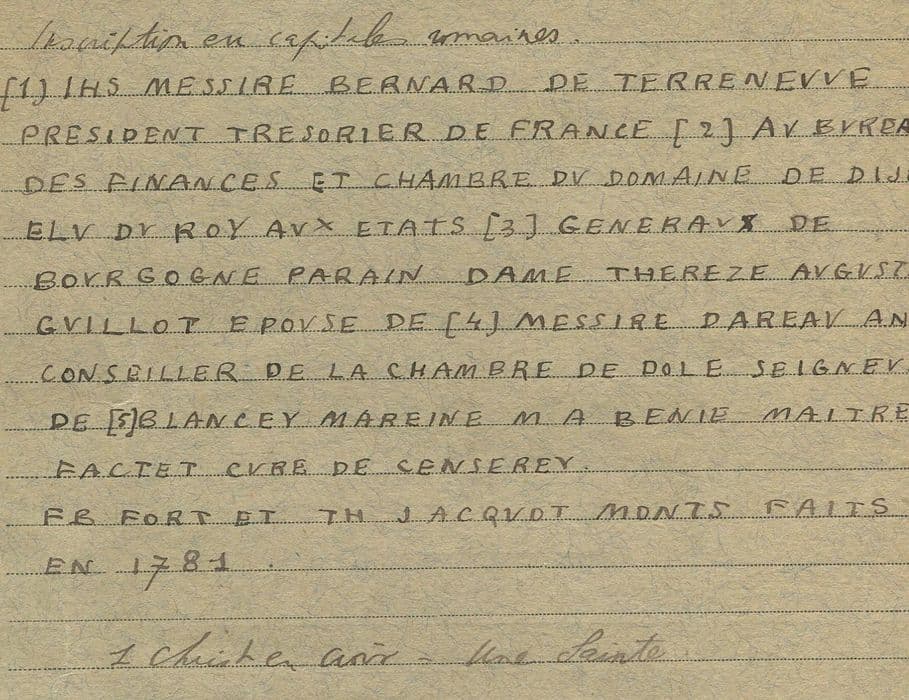 Inscription en capitales romaines.
[1] IHS MESSIRE BERNARD DE TERRENEVVE
PRESIDENT TRESORIER DE FRANCE [2] AV BVREA
DES FINANCES ET CHAMBRE DV DOMAINE DE DIJ
ELV DV ROY AVX ETATS [3] GENERAVX DE
BOVRGOGNE PARAIN DAME THEREZE AVGVST
GVILLOT EPOVSE DE [4] MESSIRE DAREAV AN
CONSEILLER DE LA CHAMBRE DE DOLE SEIGNEV
DE [5] BLANCEY MAREINE M A BENIE MAITRE
FACTET CVRE DE CENSEREY.
FB FORT ET TH JACQVOT MONTS FAITS
EN 1781.
1 Christ en croix - Une Sainte